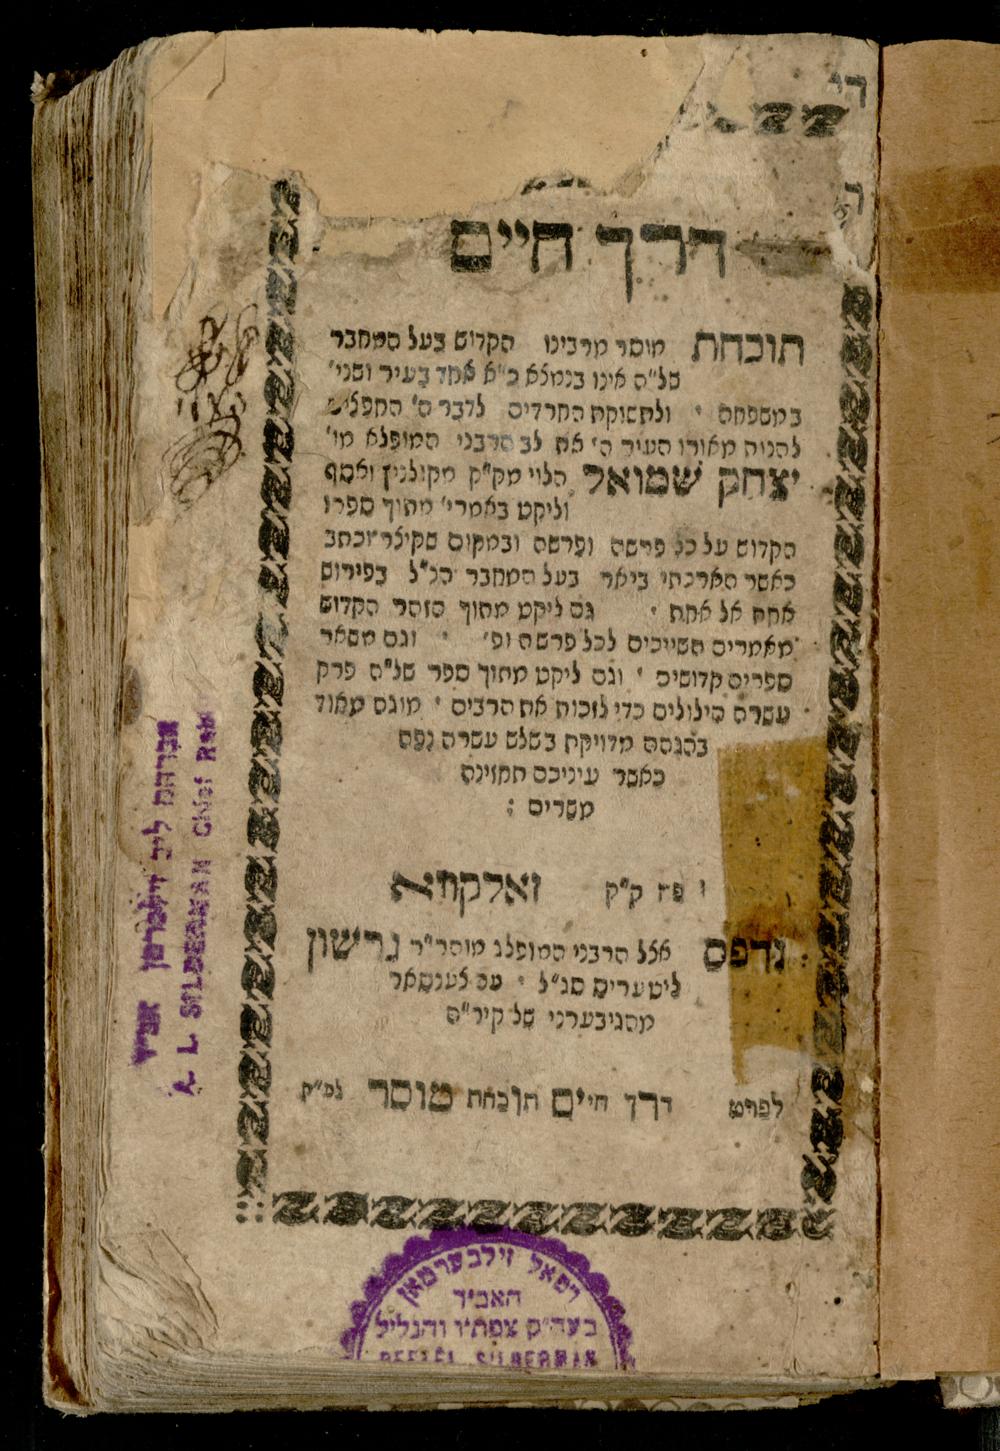 דרך חיים
תוכחת מוסר מרבינו הקדוש בעל המחבר
של״ה אינו בנמצא כ״א אחד בעיר ושני׳
במשפחה ולתשוקת החרדים לדבר ה׳
להנות מאורו העיר ה׳ את לב הרבני המופלא מו׳
יצחק שמואל הלוי מק״ק ואסף
וליקט באמרי׳ מתוך ספרו
הקדוש על כל פרשה ופרשה ובמקום שקיצר וכתב
כאשר הארכתי ביאר בעל המחבר הנ״ל בפירוש
אחת אל אחת גם ליקט מתוך הזוהר הקדוש
מאמרים השייכים לכל פרשה ופ׳ וגם משאר
ספרים קדושים וגם ליקט מתוך ספר של״ה פרק
עשרה הילולים כדי לזכות את הרבים מוגה מאוד
בהגהה מדויקת בשלש עשרה נפה
כאשר עיניכם תחזינה
משרים :
פה ק״ק זאלקווא
נדפס אצל הרבני המופלג מוהר״ר גרשון
ליטעריס סג״ל עם
של קיר״ה
לפרט דרך חיים תוכחת מוסר לפ״ק
אברהם ליב זילברמן
A. L. SILBERMAN Chief Rab
רפאל זילבערמאן
האב״ד
בעה״ק צפת״ו והגליל
REFAEL SILBERMAN